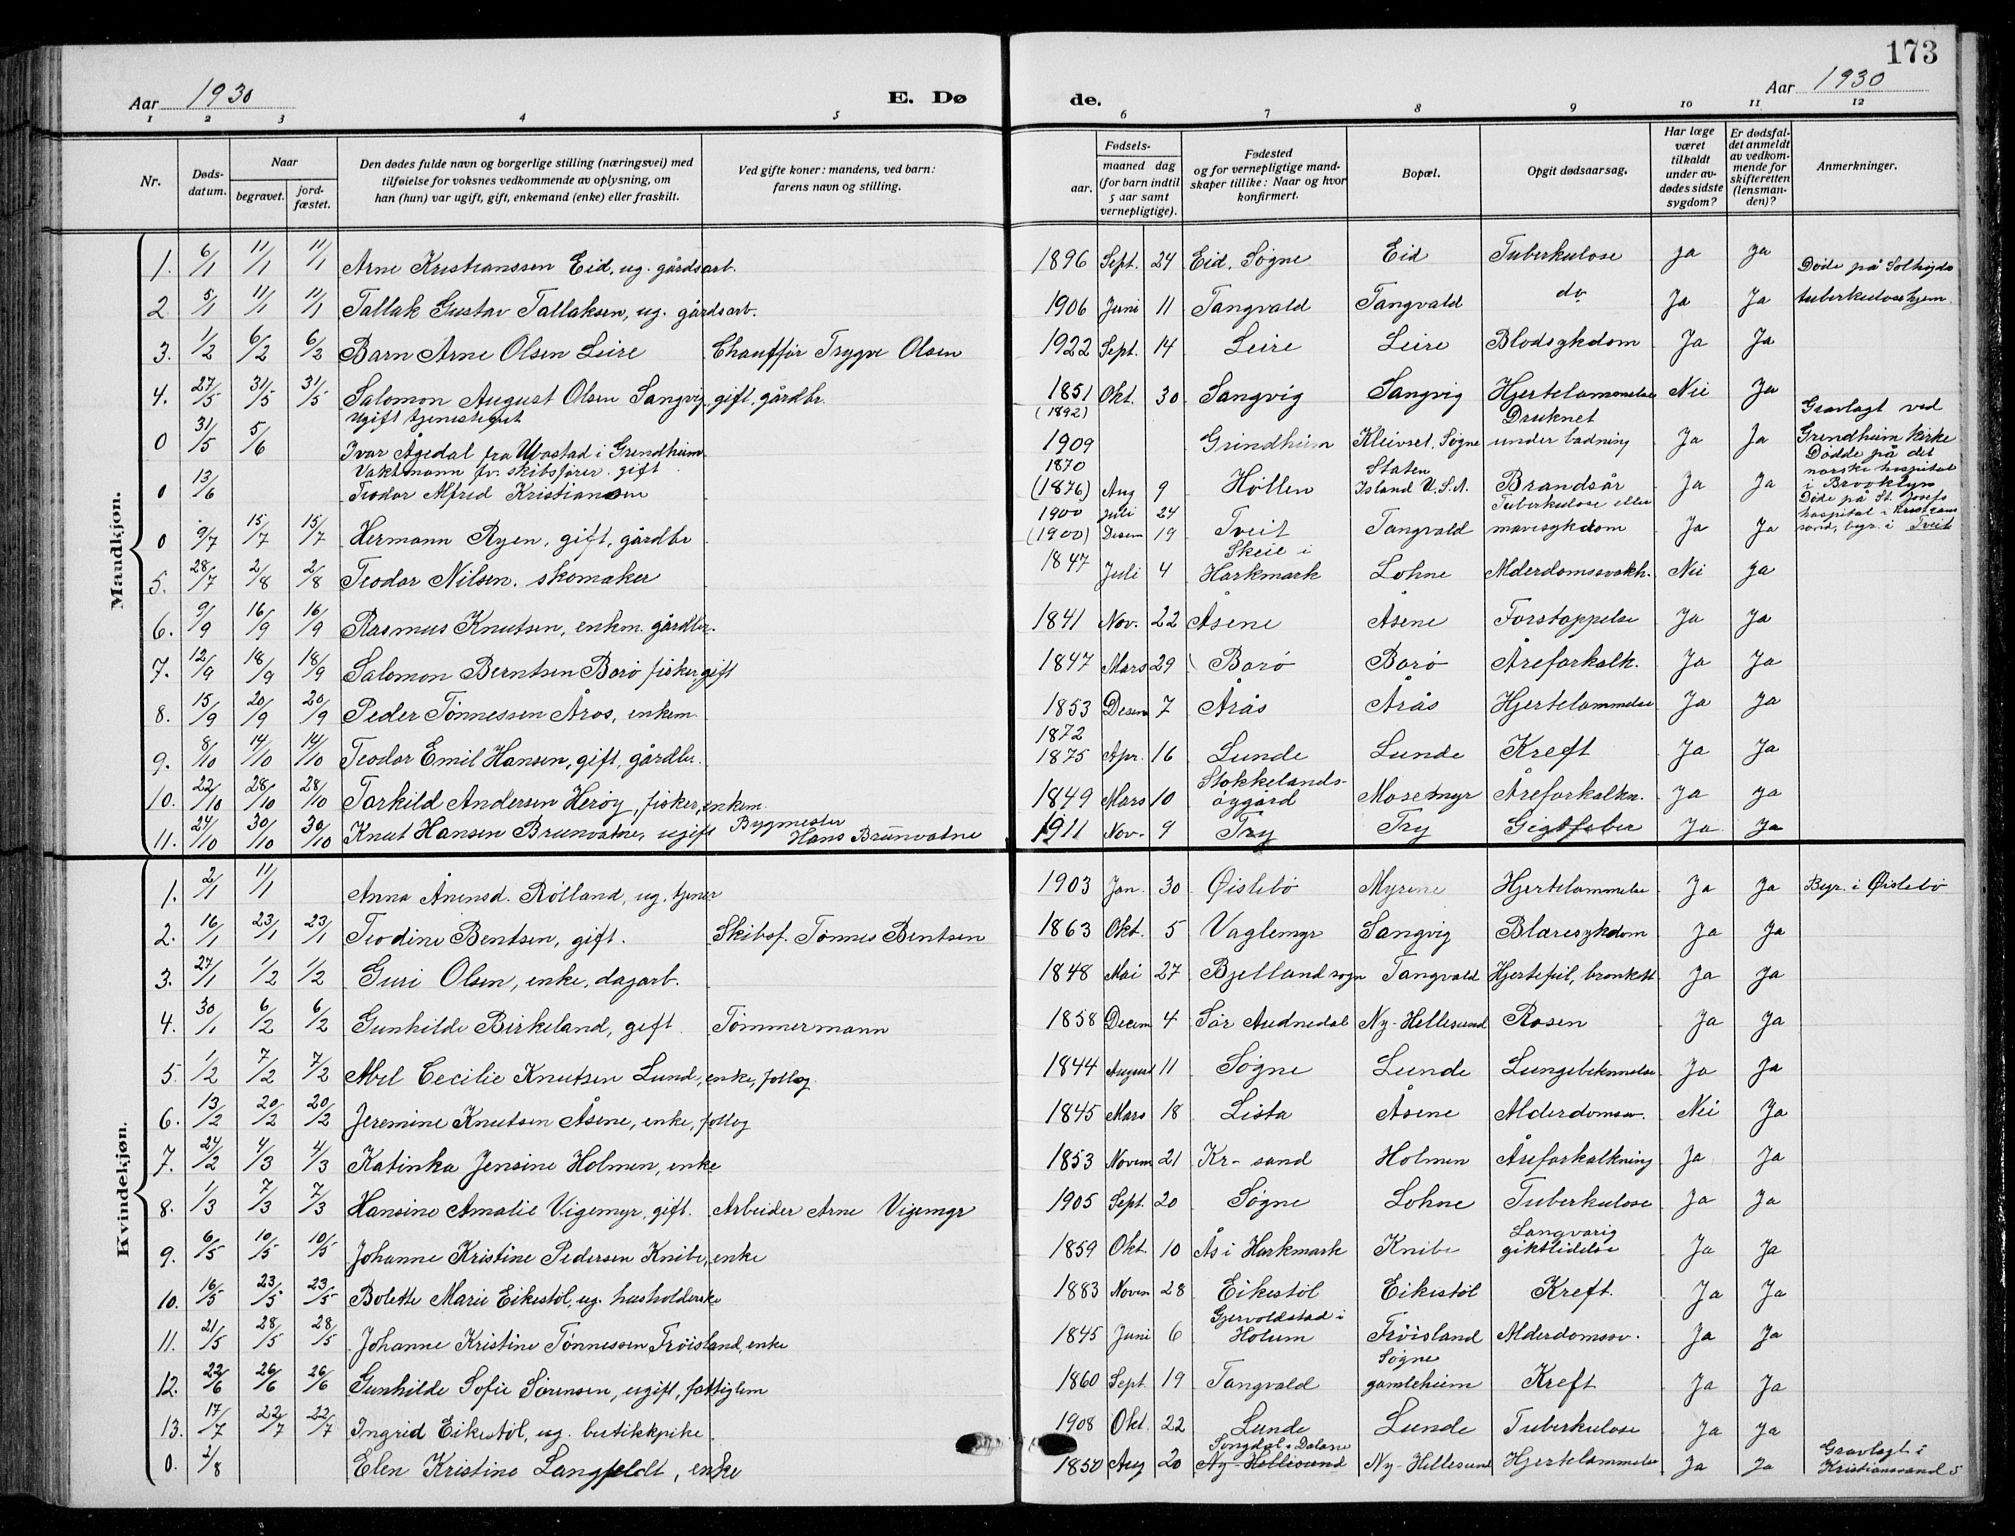 173
Aar 1930 E. Dø de. Aar 1930
1 2 3 4 5 6 7 8 9 10 11 12
Nr. Døds-datum. Naar begravet. jord-fæstet. Den dødes fulde navn og borgerlige stilling (næringsvei) med tilføielse for voksnes vedkommende av oplysning, om han (hun) var ugift, gift, enkemand (enke) eller fraskilt. Ved gifte koner: mandens, ved barn: farens navn og stilling. Fødsels- aar. maaned dag (for barn indtil 5 aar samt vernepligtige). Fødested og for vernepligtige mand-skaper tillike: Naar og hvor konfirmert. Bopæl. Opgit dødsaarsag. Har læge været tilkaldt under av-dødes sidste sygdom? Er dødsfal-det anmeldt av vedkom-mende for skifteretten (lensman-den)? Anmerkninger.
Mandkjøn.
1. 6/1 11/1 11/1 Arne Kristianssen Eid, ug. gårdsarb. 1896 Sept. 24 Eid, Søgne Eid Tuberkulose Ja Ja Døde på Solhøgda
2 5/1 11/1 11/1 Tallak Gustav Tallaksen, ug. gårdsarb. 1906 Juni 11 Tangvald Tangvald do Ja Ja tuberkulosehjem
3. 1/2 6/2 6/2 Barn Arne Olsen Leire Chauffør Trygve Olsen 1922 Sept. 14 Leire Leire Blodsykdom Ja Ja
4. 27/5 31/5 31/5 Salomon August Olsen Sangvig, gift, gårdbr. 1851 Okt. 30 Sangvig Sangvig Hjertelammelse Nei Ja
0 31/5 5/6 Ugift tjenestegut Ivar Ågedal fra Ubostad i Grendheim (1892) 1909 Grindheim Kleivset, Søgne Druknet under badning Ja Ja Gravlagt ved Grendheim kirke
0 13/6 Vaktmann fv. skibsfører. gift Teodor Alfred Kristiansen 1870 (1876) Aug 9 Høllen Staten Island U.S.A. Brandsår Ja Ja Dødde på det norske hospital i Brooklyn
0 9/7 15/7 15/7 Hermann Ryen, gift, gårdbr 1900 Juli 24 (1900) Desem 19 Tveit Tangvald Tuberkulose eller mavesykdom Ja Ja Døde på St. Josefs hospital i Kristiansand, begr. i Tveit
5. 28/7 2/8 2/8 Teodor Nilsen, skomaker 1847 Juli 4 Skeie i Harkmark Lohne Alderdomssvakh. Nei Ja
6. 9/9 16/9 16/9 Rasmus Knutsen, enkm. gårdbr. 1841 Nov. 22 Åsene Åsene Forstoppelse Ja Ja
7. 12/9 18/9 18/9 Salomon Berntsen Borø fisker, gift 1847 Mars 29 Borø Borø Åreforkalk. Ja Ja
8. 15/9 20/9 20/9 Peder Tønnessen Åros, enkem. 1853 Desem 7 Årås Årås Hjertelammelse Ja Ja
9. 8/10 14/10 14/10 Teodor Emil Hansen, gift, gårdbr. 1872 1875 Apr. 16 Lunde Lunde Kreft Ja Ja
10. 22/10 28/10 28/10 Torkild Andersen Herøy, fisker, enkem. 1849 Mars 10 Stokkelands-øygård Mosemyr Åreforkalkn. Ja Ja
11. 24/10 30/10 30/10 Knut Hansen Brunvatne, ugift Bygmester Hans Brunvatne 1911 Nov. 9 Try Try Gigtfeber Ja Ja
Kvindekjøn.
1. 2/1 11/1 Anna Ånensd. Rølland, ug. tjener 1903 Jan. 30 Øislebø Myrene Hjertelammelse Ja Ja Begr. i Øislebø
2. 16/1 23/1 23/1 Teodine Bentsen, gift. Skibsf. Tønnes Bentsen 1863 Okt. 5 Vaglemyr Sangvig Blæresykdom Ja Ja
3. 27/1 1/2 1/2 Guri Olsen, enke, dagarb. 1848 Mai 27 Bjelland sogn Tangvald Hjertefeil, bronkitt Ja Ja
4. 30/1 6/2 6/2 Gunhilde Birkeland, gift Tømmermann 1858 Decem 4 Sør Audnedal Ny-Hellesund Rosen Ja Ja
5. 1/2 7/2 7/2 Abel Cecilie Knutsen Lund, enke, follog. 1844 August 11 Søgne Lunde Lungebetennelse Ja Ja
6. 13/2 20/2 20/2 Jeremine Knutsen Åsene, enke, follog 1845 Mars 18 Lista Åsene Alderdomssv. Nei Ja
7. 24/2 4/3 4/3 Katinka Jensine Holmen, enke 1853 Novem 21 Kr-sand Holmen Åreforkalkning Ja Ja
8. 1/3 7/3 7/3 Hansine Amalie Vigemyr, gift. Arbeider Arne Vigemyr 1905 Sept. 20 Søgne Lohne Tuberkulose Ja Ja
9. 6/5 10/5 10/5 Johanne Kristine Pedersen Knibe, enke 1859 Okt. 10 Ås i Harkmark Knibe Langvarig giktlidelse Ja Ja
10. 16/5 23/5 23/5 Bolette Marie Eikestøl, ug. husholderske 1883 Novem 28 Eikestøl Eikestøl Kreft. Ja Ja
11. 21/5 28/5 28/5 Johanne Kristine Tønnessen Frøisland, enke 1845 Juni 6 Gjervoldstad i Holum Frøisland Alderdomssv. Ja Ja
12. 22/6 26/6 26/6 Gunhilde Sofie Sørensen, ugift, fattiglem 1860 Sept 19 Tangvald Søgne gamleheim Kreft Ja Ja
13. 17/7 22/7 22/7 Ingrid Eikestøl, ug. butikkpike 1908 Okt. 22 Lunde Lunde Tuberkulose Ja Ja
0. 2/8 Elen Kristine Langfeldt, enke 1850 Aug 20 Songdal i Dalane Ny-Hellesund Ny-Hellesund Hjertelammelse Ja Ja Gravlagt i Kristianssand S